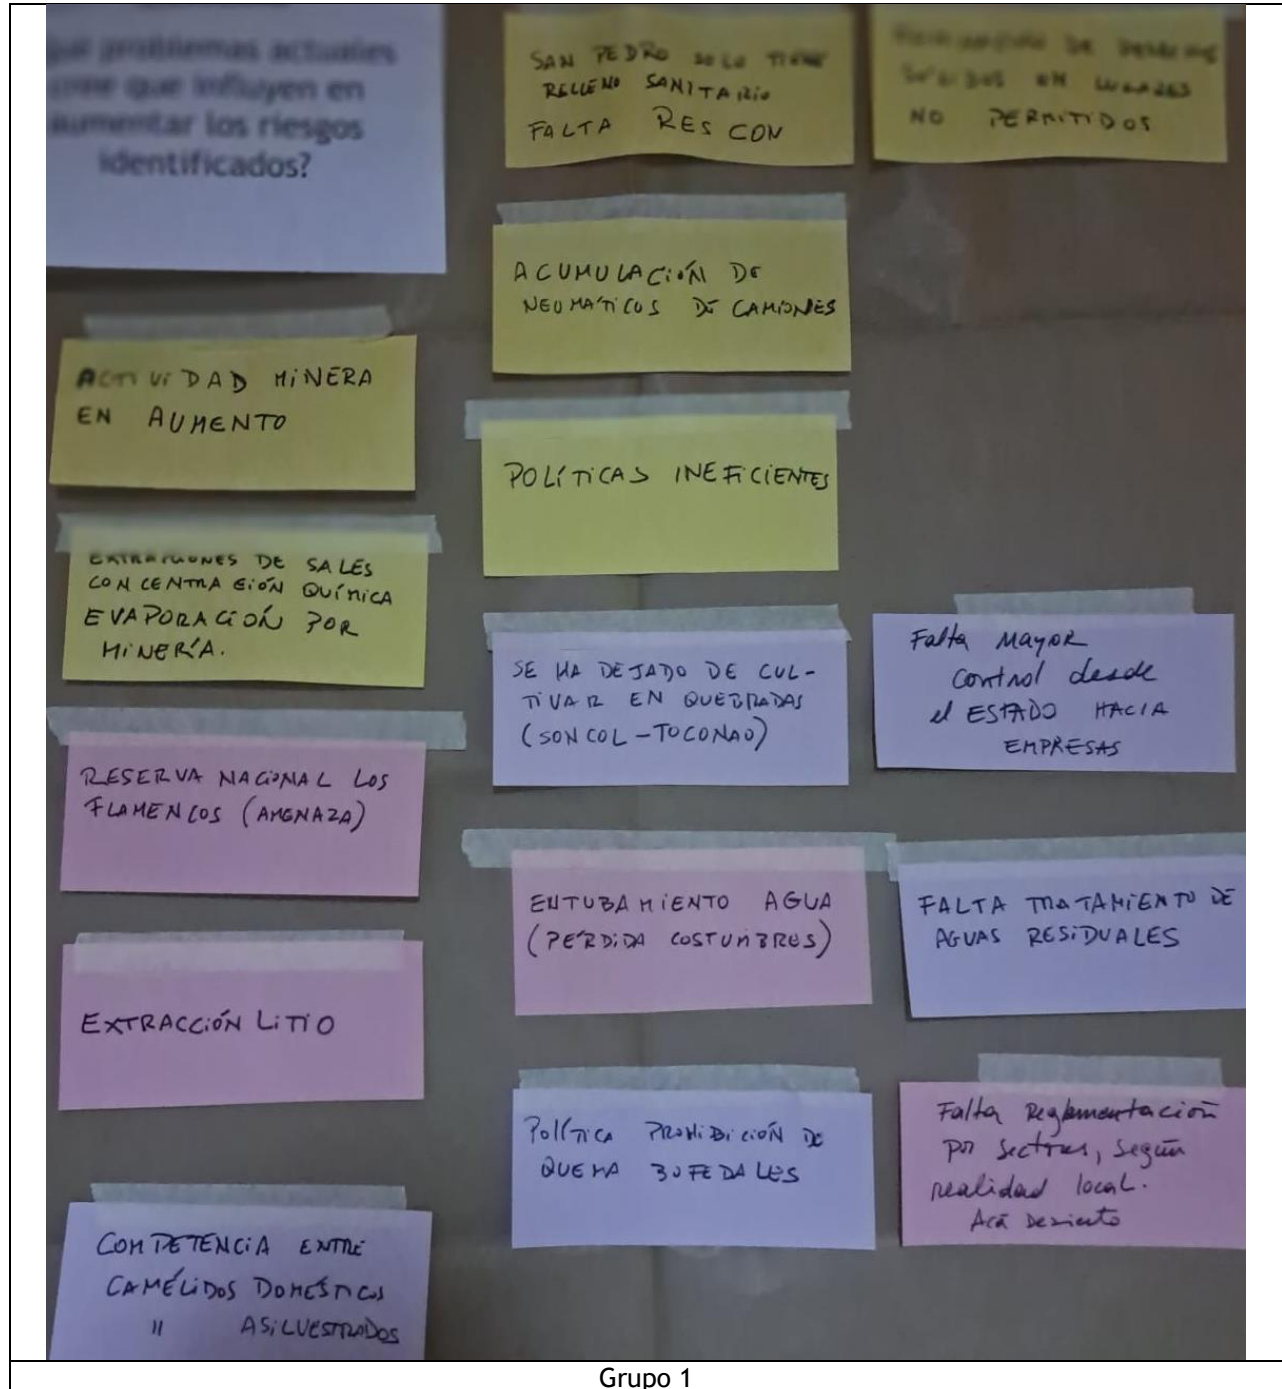 problemas actuales
cree que influyen en
aumentar los riesgos
identificados?
ACTIVIDAD MINERA
EN AUMENTO
EXTRACCIONES DE SALES
CONCENTRACIÓN QUÍMICA
EVAPORACIÓN POR
MINERÍA.
RESERVA NACIONAL LOS
FLAMENCOS (AMENAZA)
EXTRACCIÓN LITIO
COMPETENCIA ENTRE
CAMÉLIDOS DOMÉSTICOS
" ASILVESTRADOS
SAN PEDRO SOLO TIENE
RELLENO SANITARIO
FALTA RES CON
ACUMULACIÓN DE
NEUMÁTICOS DE CAMIONES
POLÍTICAS INEFICIENTES
SE HA DEJADO DE CUL-
TIVAR EN QUEBRADAS
(SONCOL-TOCONAO)
ENTUBAMIENTO AGUA
(PÉRDIDA COSTUMBRES)
POLÍTICA PROHIBICIÓN DE
QUEMA BOFEDALES
DE
SOLIDOS EN LUGARES
NO PERMITIDOS
Falta MAYOR
control desde
el ESTADO HACIA
EMPRESAS
FALTA TRATAMIENTO DE
AGUAS RESIDUALES
Falta Reglamentación
por sectores, según
realidad local.
Acá Desierto
Grupo 1